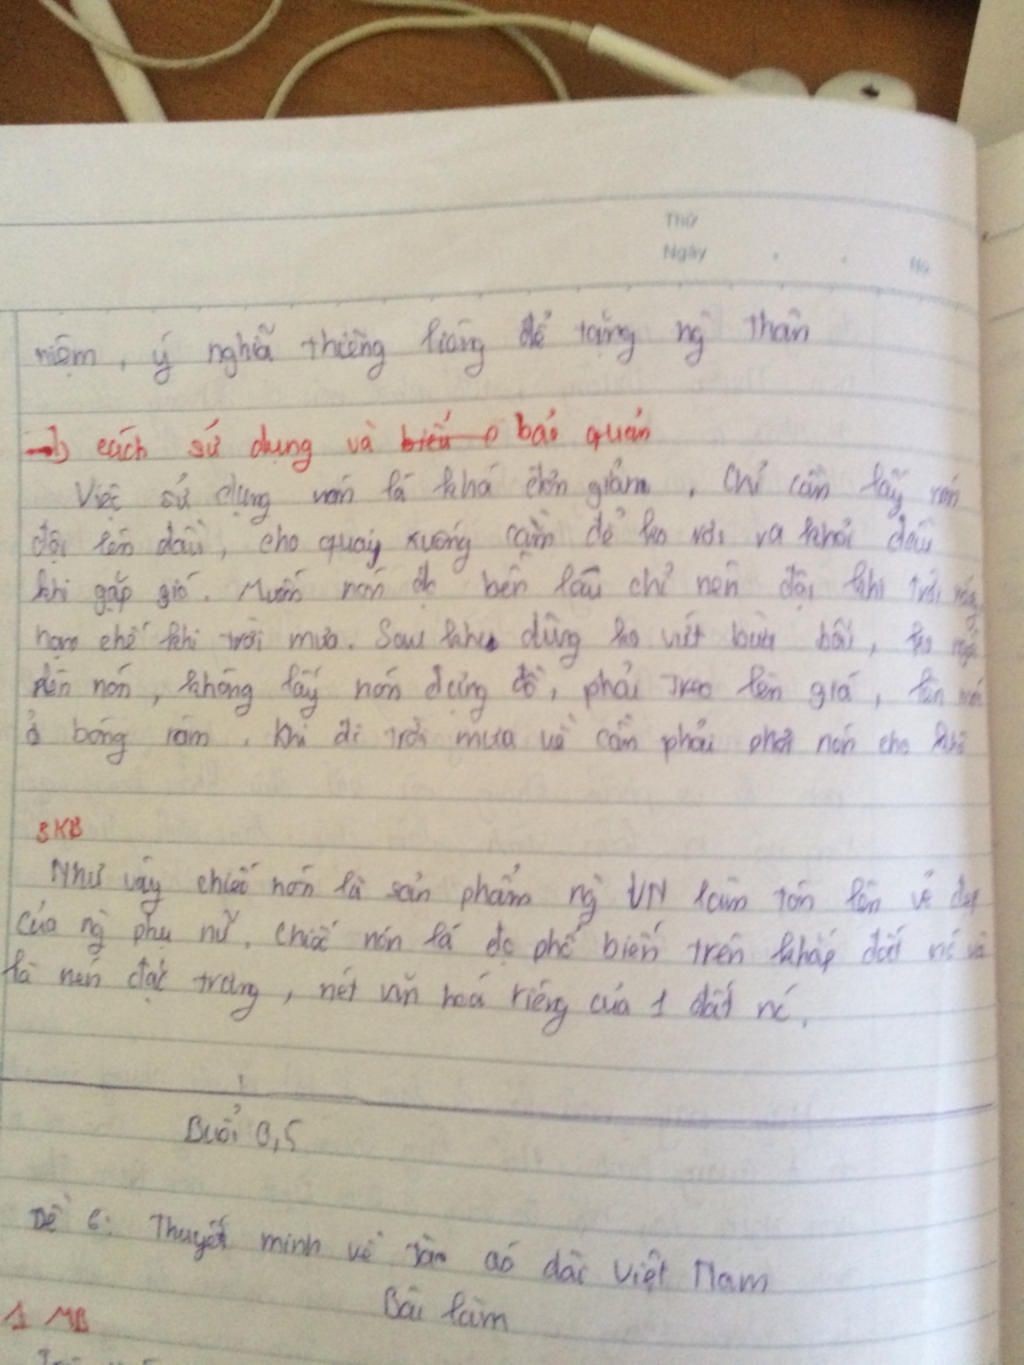 Thứ
Ngày
No
niệm, ý nghĩa thiêng liêng để tặng ng` thân
→) cách sử dụng và biểu o bảo quản
Việc sử dụng nón lá khá đơn giản. Chỉ cần lấy nón
đội lên đầu, cho quay xuống cằm để ko rơi ra khỏi đầu
khi gặp gió. Muốn nón đc bền lâu chỉ nên đội khi trời nắng,
hạn chế khi trời mưa. Sau khi dùng ko vứt bừa bãi, ko ngồi
lên nón, không lấy nón đựng đồ, phải treo lên giá,
ở bóng râm. Khi đi trời mưa về cần phải phơi nón cho khô
3 KB
Như vậy chiếc nón là sản phẩm ng` VN làm tôn lên vẻ đẹp
của ng` phụ nữ. Chiếc nón lá đc phổ biến trên khắp đất nc và
là nén đặc trưng, nét văn hoá riêng của 1 đất nc.
Buổi 9,5
Đề 6: Thuyết minh về áo dài Việt Nam
Bài làm
1 MB